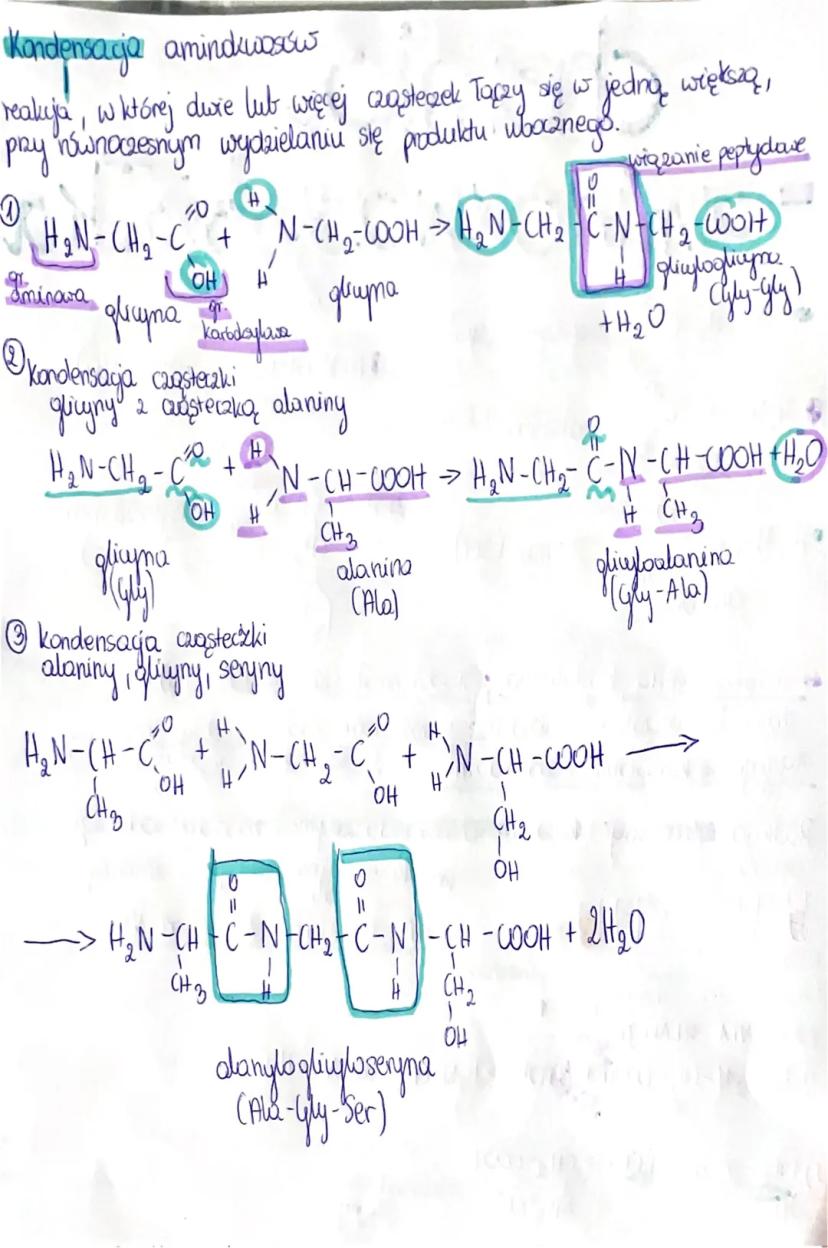 Kondensacja aminokwasów
reakcja, w której dwie lub więcej cząsteczek łączy się w jedną większą,
przy równoczesnym wydzielaniu się produktu ubocznego.
wiązanie peptydowe
① H₂N-CH₂-C(=O)-OH + H-N(-H)-CH₂-COOH → H₂N-CH₂-C(=O)-N(-H)-CH₂-COOH
gr. aminowa glicyna gr. karboksylowa glicyna glicyloglicyna (Gly-Gly)
+ H₂O
② kondensacja cząsteczki
glicyny z cząsteczką alaniny
H₂N-CH₂-C(=O)-OH + H-N(-H)-CH(-CH₃)-COOH → H₂N-CH₂-C(=O)-N(-H)-CH(-CH₃)-COOH + H₂O
glicyna alanina glicyloalanina
(Gly) (Ala) (Gly-Ala)
③ kondensacja cząsteczki
alaniny, glicyny, seryny
H₂N-CH(-CH₃)-C(=O)-OH + H-N(-H)-CH₂-C(=O)-OH + H-N(-H)-CH(-CH₂-OH)-COOH →
→ H₂N-CH(-CH₃)-C(=O)-N(-H)-CH₂-C(=O)-N(-H)-CH(-CH₂-OH)-COOH + 2H₂O
alanyloglicyloseryna
(Ala-Gly-Ser)